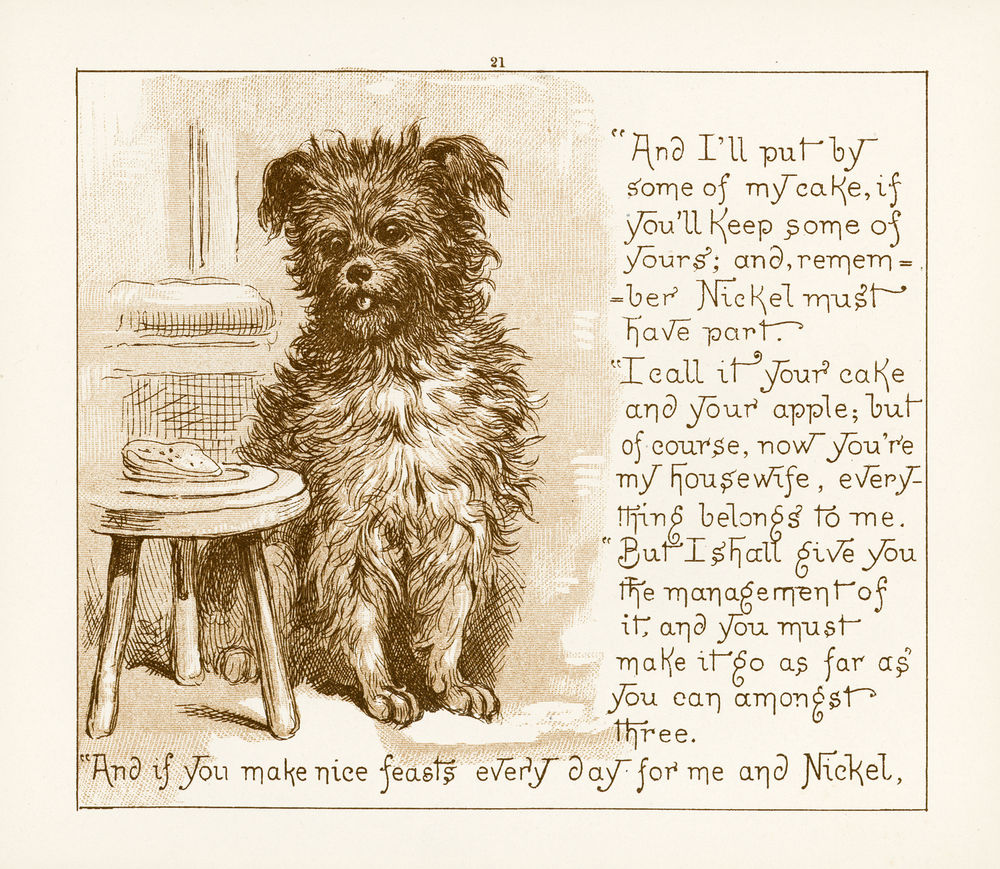 21
“And I’ll put by
some of my cake, if
you’ll keep some of
yours; and, remem=
=ber Nickel must
have part.
“I call it your cake
and your apple; but
of course, now you’re
my housewife, every-
thing belongs to me.
“But I shall give you
the management of
it, and you must
make it go as far as
you can amongst
three.
“And if you make nice feasts every day for me and Nickel,